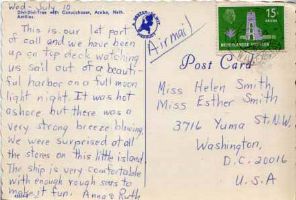 Wed- July 10
Dividivi-Tree with Cunucuhouse, Aruba, Neth. Antilles
This is our 1st port
of call and we have been
up on top deck watching
us sail out of a beauti-
ful harbor on a full moon
light night. It was hot
ashore but there was a
very strong breeze blowing.
We were surprised at all
the stores on this little island
The ship is very comfortable
with enough rough seas to
make it fun. Anna & Ruth
Airmail
Post Card
15
NEDERLANDSE ANTILLEN
Miss Helen Smith
Miss Esther Smith
3716 Yuma St. N.W.
Washington,
D.C. 20016
U.S.A